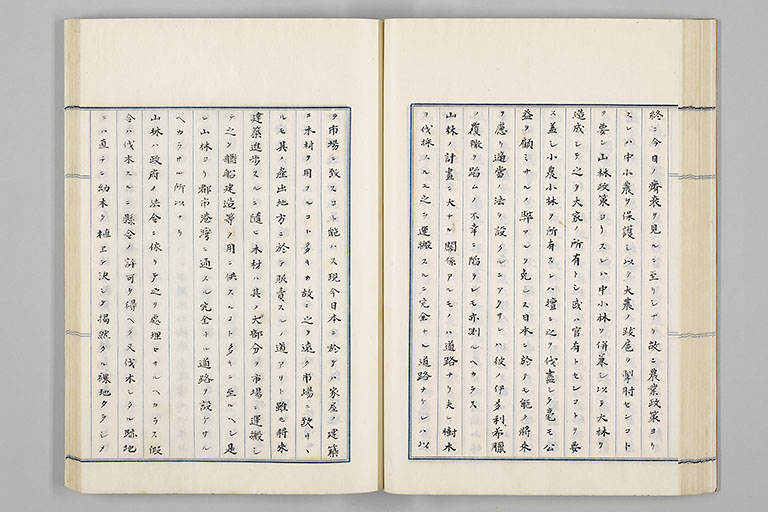 終ニ今日ノ衰ヲ見ルニ至リシナリ故ニ農業政策ヨリ
スレハ中小農ヲ保護シ以テ大農ノ跋扈ヲ掣肘センコト
ヲ要シ山林政策ヨリスレハ中小林ヲ併兼シ以テ大林ヲ
造成シテ之ヲ大家ノ所有トシ或ハ官有トセンコトヲ要
ス蓋シ小農小林ヲ所有スレハ擅ニ之ヲ伐盡シテ毫モ公
益ヲ顧ミサルノ弊アルヲ免レス日本ニ於テモ能ク將来
ヲ慮リ適當ノ法ヲ設クルニアラサレハ彼ノ伊多利希臘
ノ覆轍ヲ踏ムノ不幸ニ陥ルヤモ亦測ルヘカラス
山林ノ計畫ニ大ナル關係アルモノハ道路ナリ夫レ樹木
ヲ伐採スルモ之ヲ運搬スルニ完全ナル道路ナケレハ以
テ市場ニ致スコト能ハス現今日本ニ於テハ家屋ノ建築
ニ木材ヲ用フルコト多キカ故ニ之ヲ遠ク市場ニ致サ
ルモ其ノ産出地方ニ於テ販賣スルノ道アリト雖モ將来
建築進歩スルニ随ヒ木材ハ其ノ大部分ヲ市場ニ運搬シ
テ之ヲ船建造等ノ用ニ供スルコト多キニ至ルヘシ是
レ山林ヨリ都市港灣ニ通スル完全ナル道路ヲ設ケサル
ヘカラサル所以ナリ
山林ハ政府ノ法令ニ依リテ之ヲ處理セサルヘカラス假
令ハ伐木スルニ縣令ノ許可ヲ得ヘク又伐木シタル跡地
ニハ直チニ幼木ヲ植エテ決シテ掲然タル裸地タラシメ